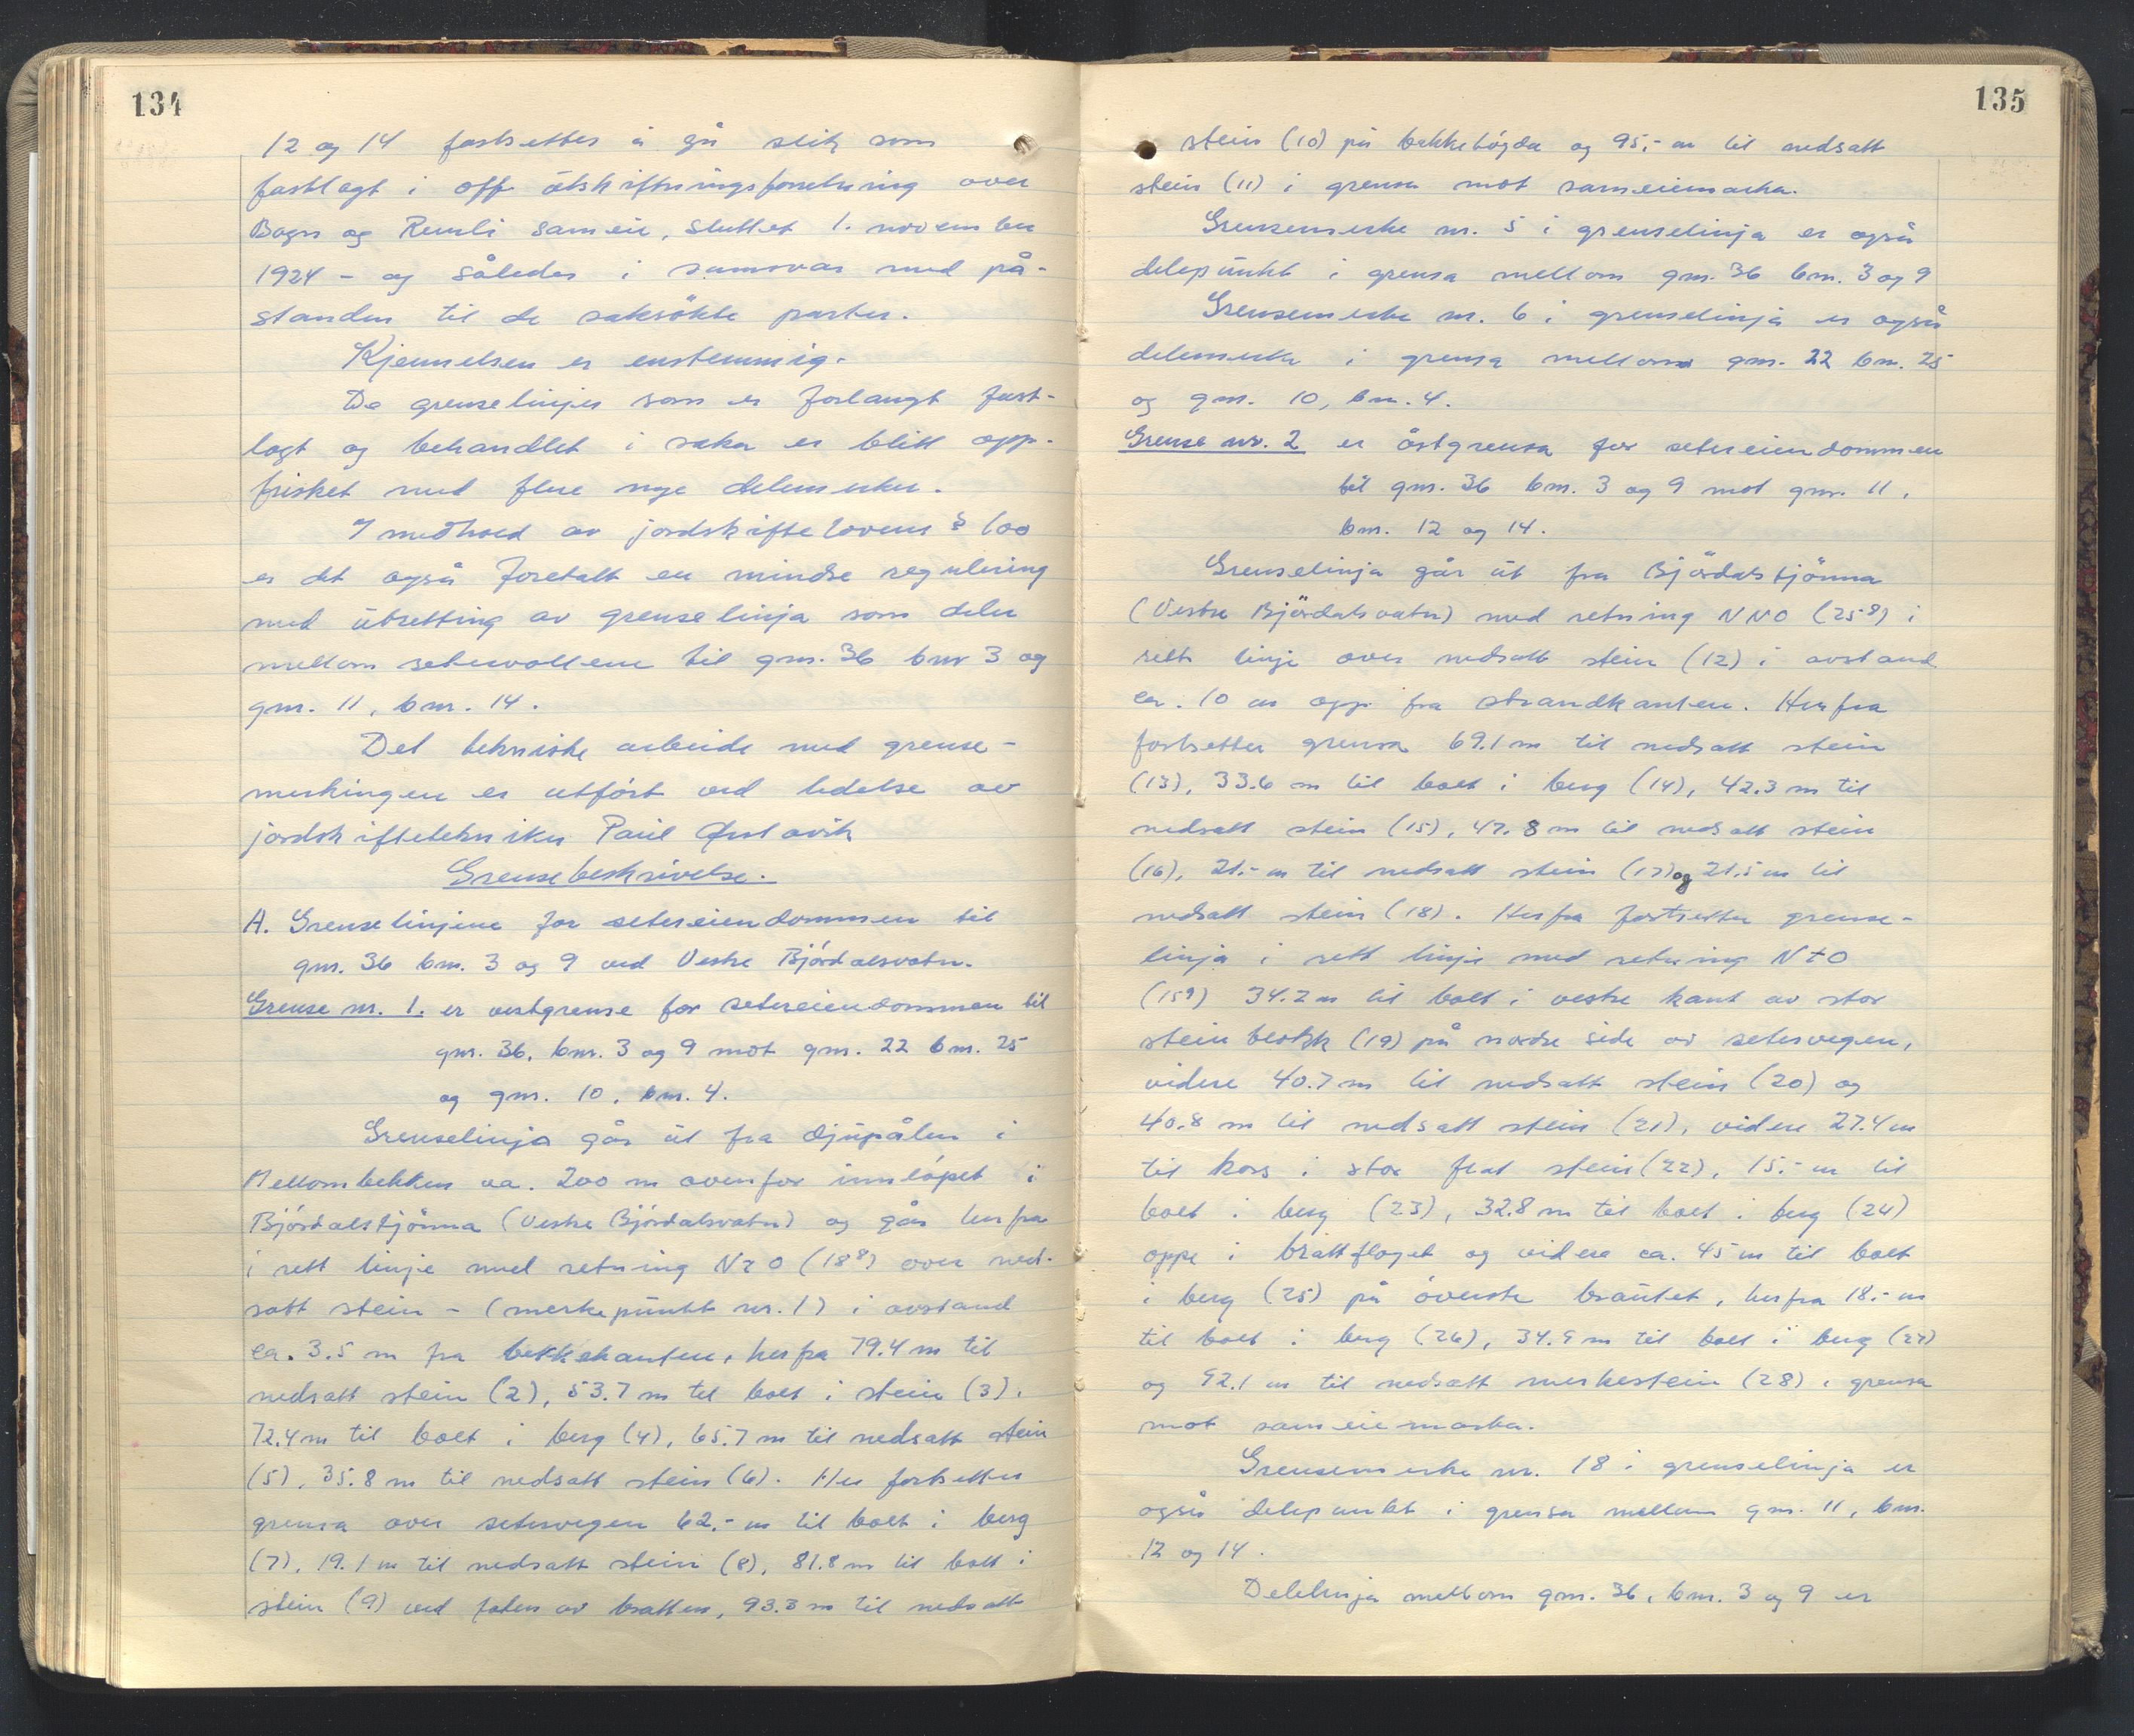 134
12 og 14 fortsetter å gå slik som
fastlagt i off utskiftningsforretning over
Bagn og Reinli sameie, sluttet 1. november
1924 - og således i samsvar med på-
standen til de saksökte parter.
Kjennelsen er enstemmig.
De grenselinjer som er forlangt fast-
lagt og behandlet i saka er blitt opp-
frisket med flere nye delemerker.
I medhold av jordskiftelovens § 100
er det også foretatt en mindre regulering
med utretting av grenselinja som deler
mellom setervollene til gnr. 36 bnr 3 og
gnr. 11, bnr. 14.
Det tekniske arbeide med grense-
merkingen er utfört ved ledelse av
jordskiftetekniker Paul
Grensebeskrivelse.
A. Grenselinjene for setereiendommen til
gnr. 36 bnr. 3 og 9 ved Vestre Björdalsvatn.
Grense nr. 1. er vestgrense for setereiendommen til
gnr. 36, bnr. 3 og 9 mot gnr. 22 bnr. 25
og gnr. 10, bnr. 4.
Grenselinja går ut fra djupålen i
Mellombekken ca. 200 m ovenfor innlöpet i
Björdalstjönna (Vestre Björdalsvatn) og går herfra
i rett linje med retning NtO (18⁸) over ned-
satt stein - (merkepunkt nr. 1) i avstand
ca. 3.5 m fra bekkekanten, herfra 79.4 m til
nedsatt stein (2), 53.7 m til bolt i stein (3),
72.4 m til bolt i berg (4), 65.7 m til nedsatt stein
(5), 35.8 m til nedsatt stein (6). Her fortsetter
grensa over setervegen 62.- m til bolt i berg
(7), 19.1 m til nedsatt stein (8), 81.8 m til bolt i
stein (9) ved foten av bratten, 93.3 m til nedsatt
135
stein (10) på bakkehögda og 95,- m til nedsatt
stein (11) i grensa mot sameiemarka.
Grensemerke nr. 5 i grenselinja er også
delepunkt i grensa mellom gnr. 36 bnr. 3 og 9
Grensemerke nr. 6 i grenselinja er også
delemerke i grensa mellom gnr. 22 bnr. 25
og gnr. 10, bnr. 4.
Grense nr. 2 er östgrensa for setereiendommen
til gnr. 36 bnr. 3 og 9 mot gnr. 11,
bnr. 12 og 14.
Grenselinja går ut fra Björdalstjönna
(Vestre Björdalsvatn) med retning NNO (25⁸) i
rett linje over nedsatt stein (12) i avstand
ca. 10 m opp fra strandkanten. Herfra
fortsetter grensa 69.1 m til nedsatt stein
(13), 33.6 m til bolt i berg (14), 42.3 m til
nedsatt stein (15), 47.8 m til nedsatt stein
(16), 21.- m til nedsatt stein (17) og 21.5 m til
nedsatt stein (18). Herfra fortsetter grense-
linja i rett linje med retning NtO
(15⁹) 34.2 m til bolt i vestre kant av stor
steinblokk (19) på nordre side av setervegen,
videre 40.7 m til nedsatt stein (20) og
40.8 m til nedsatt stein (21), videre 27.4 m
til kors i stor flat stein (22), 15.- m til
bolt i berg (23), 32.8 m til bolt i berg (24)
oppe i brattfloget og videre ca. 45 m til bolt
i berg (25) på överste brautet, herfra 18.- m
til bolt i berg (26), 34.9 m til bolt i berg (27)
og 92.1 m til nedsatt merkestein (28) i grensa
mot sameiemarka.
Grensemerke nr. 18 i grenselinja er
også delepunkt i grensa mellom gnr. 11, bnr.
12 og 14.
Delelinja mellom gnr. 36, bnr. 3 og 9 er